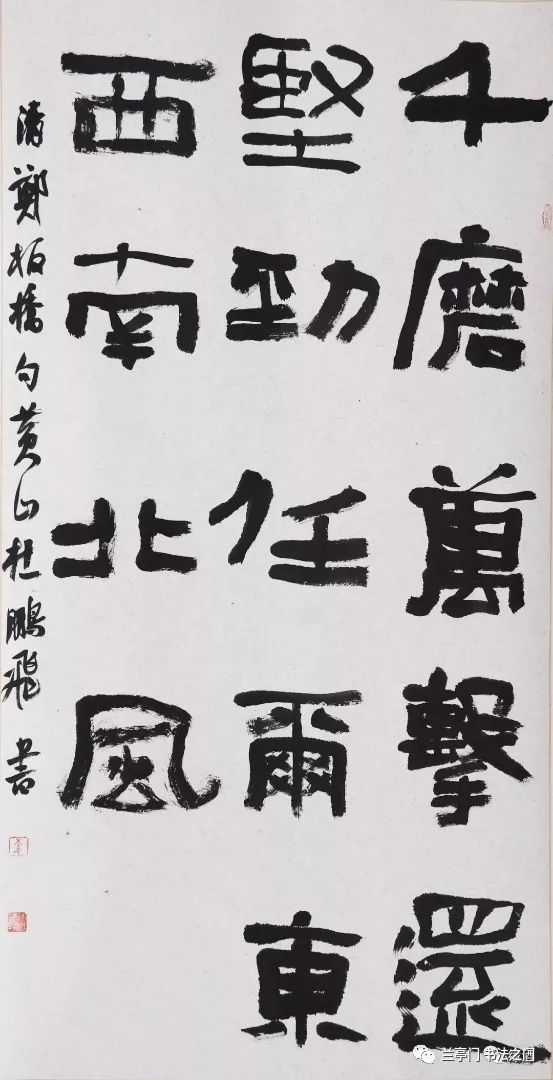 千磨萬擊還
堅勁任爾東
西南北風
清鄭板橋句黄山杜鵬飛書
兰亭门书法之家